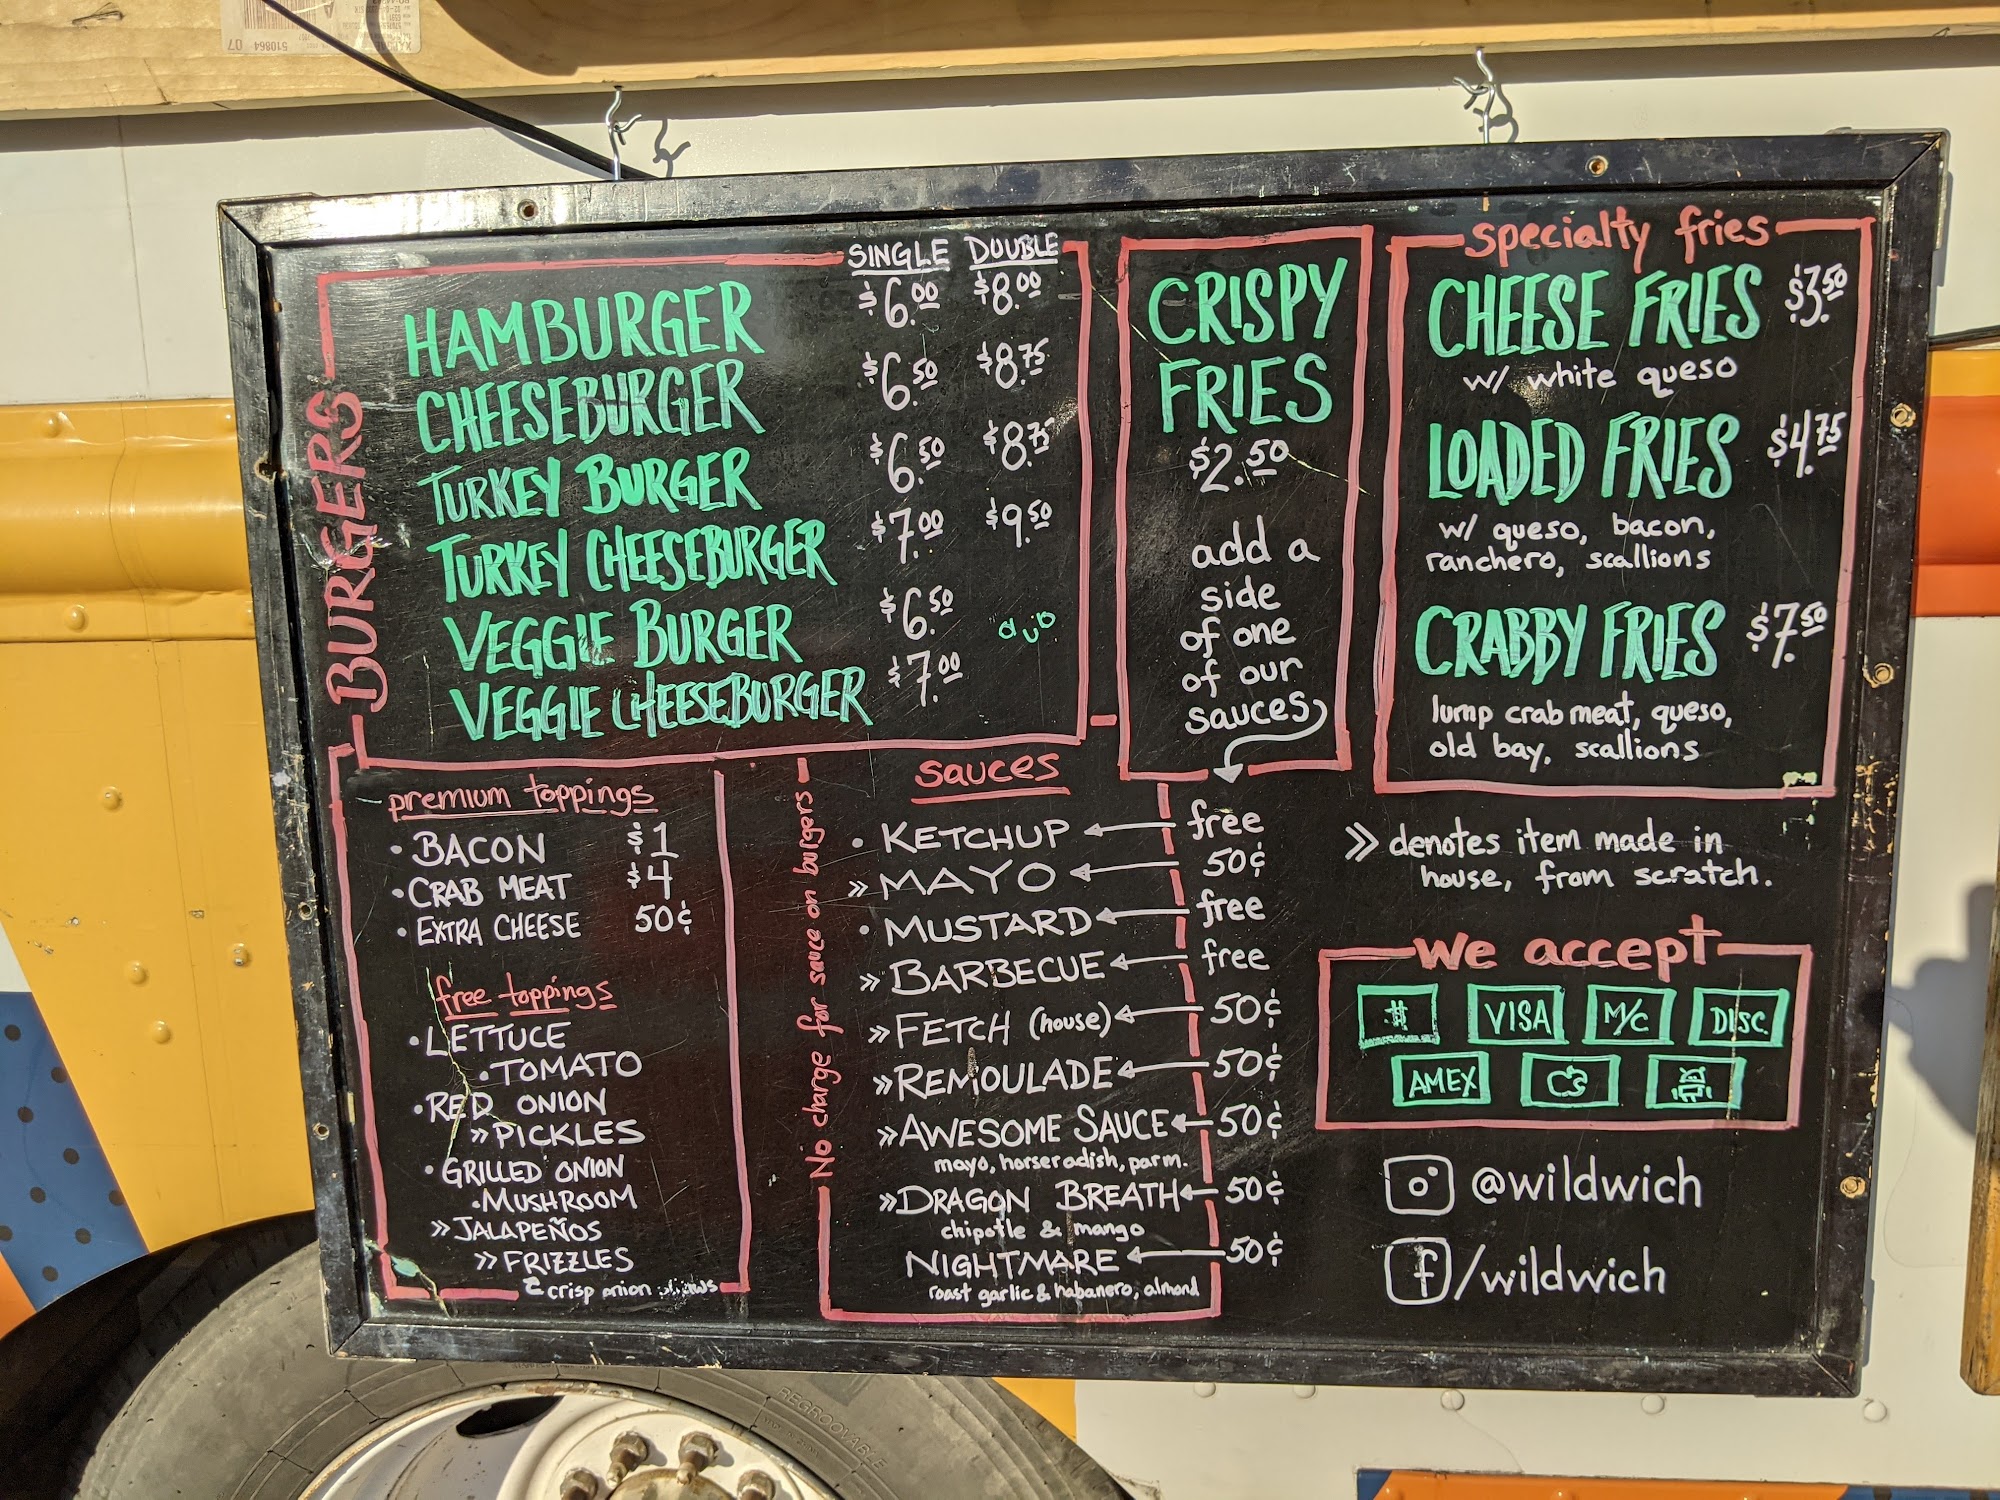 BURGERS
SINGLE DOUBLE
HAMBURGER $6.00 $8.00
CHEESEBURGER $6.50 $8.75
TURKEY BURGER $6.50 $8.75
TURKEY CHEESEBURGER $7.00 $9.50
VEGGIE BURGER $6.50
VEGGIE CHEESEBURGER $7.00
CRISPY
FRIES
$2.50
add a
side
of one
of our
sauces
specialty fries
CHEESE FRIES $3.50
w/ white queso
LOADED FRIES $4.75
w/ queso, bacon,
ranchero, scallions
CRABBY FRIES $7.50
lump crab meat, queso,
old bay, scallions
premium toppings
• BACON $1
• CRAB MEAT $4
• EXTRA CHEESE 50¢
free toppings
• LETTUCE
• TOMATO
• RED ONION
» PICKLES
• GRILLED ONION
• MUSHROOM
» JALAPEÑOS
» FRIZZLES
crisp onion
No charge for sauce on burgers
sauces
• KETCHUP free
» MAYO 50¢
• MUSTARD free
» BARBECUE free
» FETCH (house) 50¢
» REMOULADE 50¢
» AWESOME SAUCE 50¢
mayo, horseradish, parm.
» DRAGON BREATH 50¢
chipotle & mango
NIGHTMARE 50¢
roast garlic & habanero, almond
» denotes item made in
house, from scratch.
we accept
VISA M/C DISC
AMEX
@wildwich
f/wildwich
REGROOVABLE
510864 07